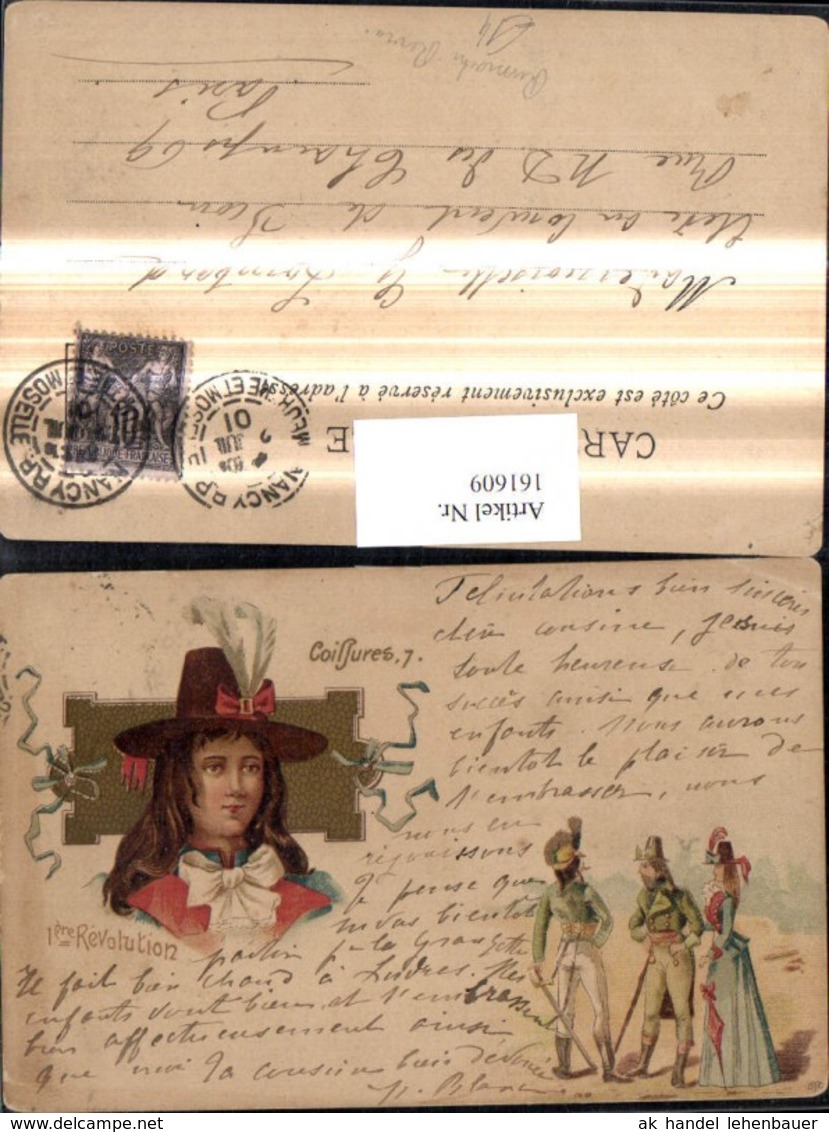 CAR
E
Ce côté est exclusivement réservé à l'adresse
POSTE
10
REPUBLIQUE FRANÇAISE
NANCY R.P.
MOSELLE
NANCY R.P.
MEURTHE ET MOSELLE
JUIL
01
Mademoiselle G. Lombard
au Couvent de Sion
Rue N.D. des Champs 69
Paris
Artikel Nr.
161609
Coiffures, 7.
1ère Révolution
Félicitations bien sincères
chère cousine, je suis
toute heureuse de ton
succès ainsi que mes
enfants. Nous aurons
bientôt le plaisir de
t'embrasser, nous
nous en
réjouissons
Je pense que
tu vas bientôt
partir pr la
Il fait bien chaud à Les
enfants vont bien et t'embrassent
bien affectueusement ainsi
que moi Ta cousine bien dévouée
Blanc
ak handel lehenbauer